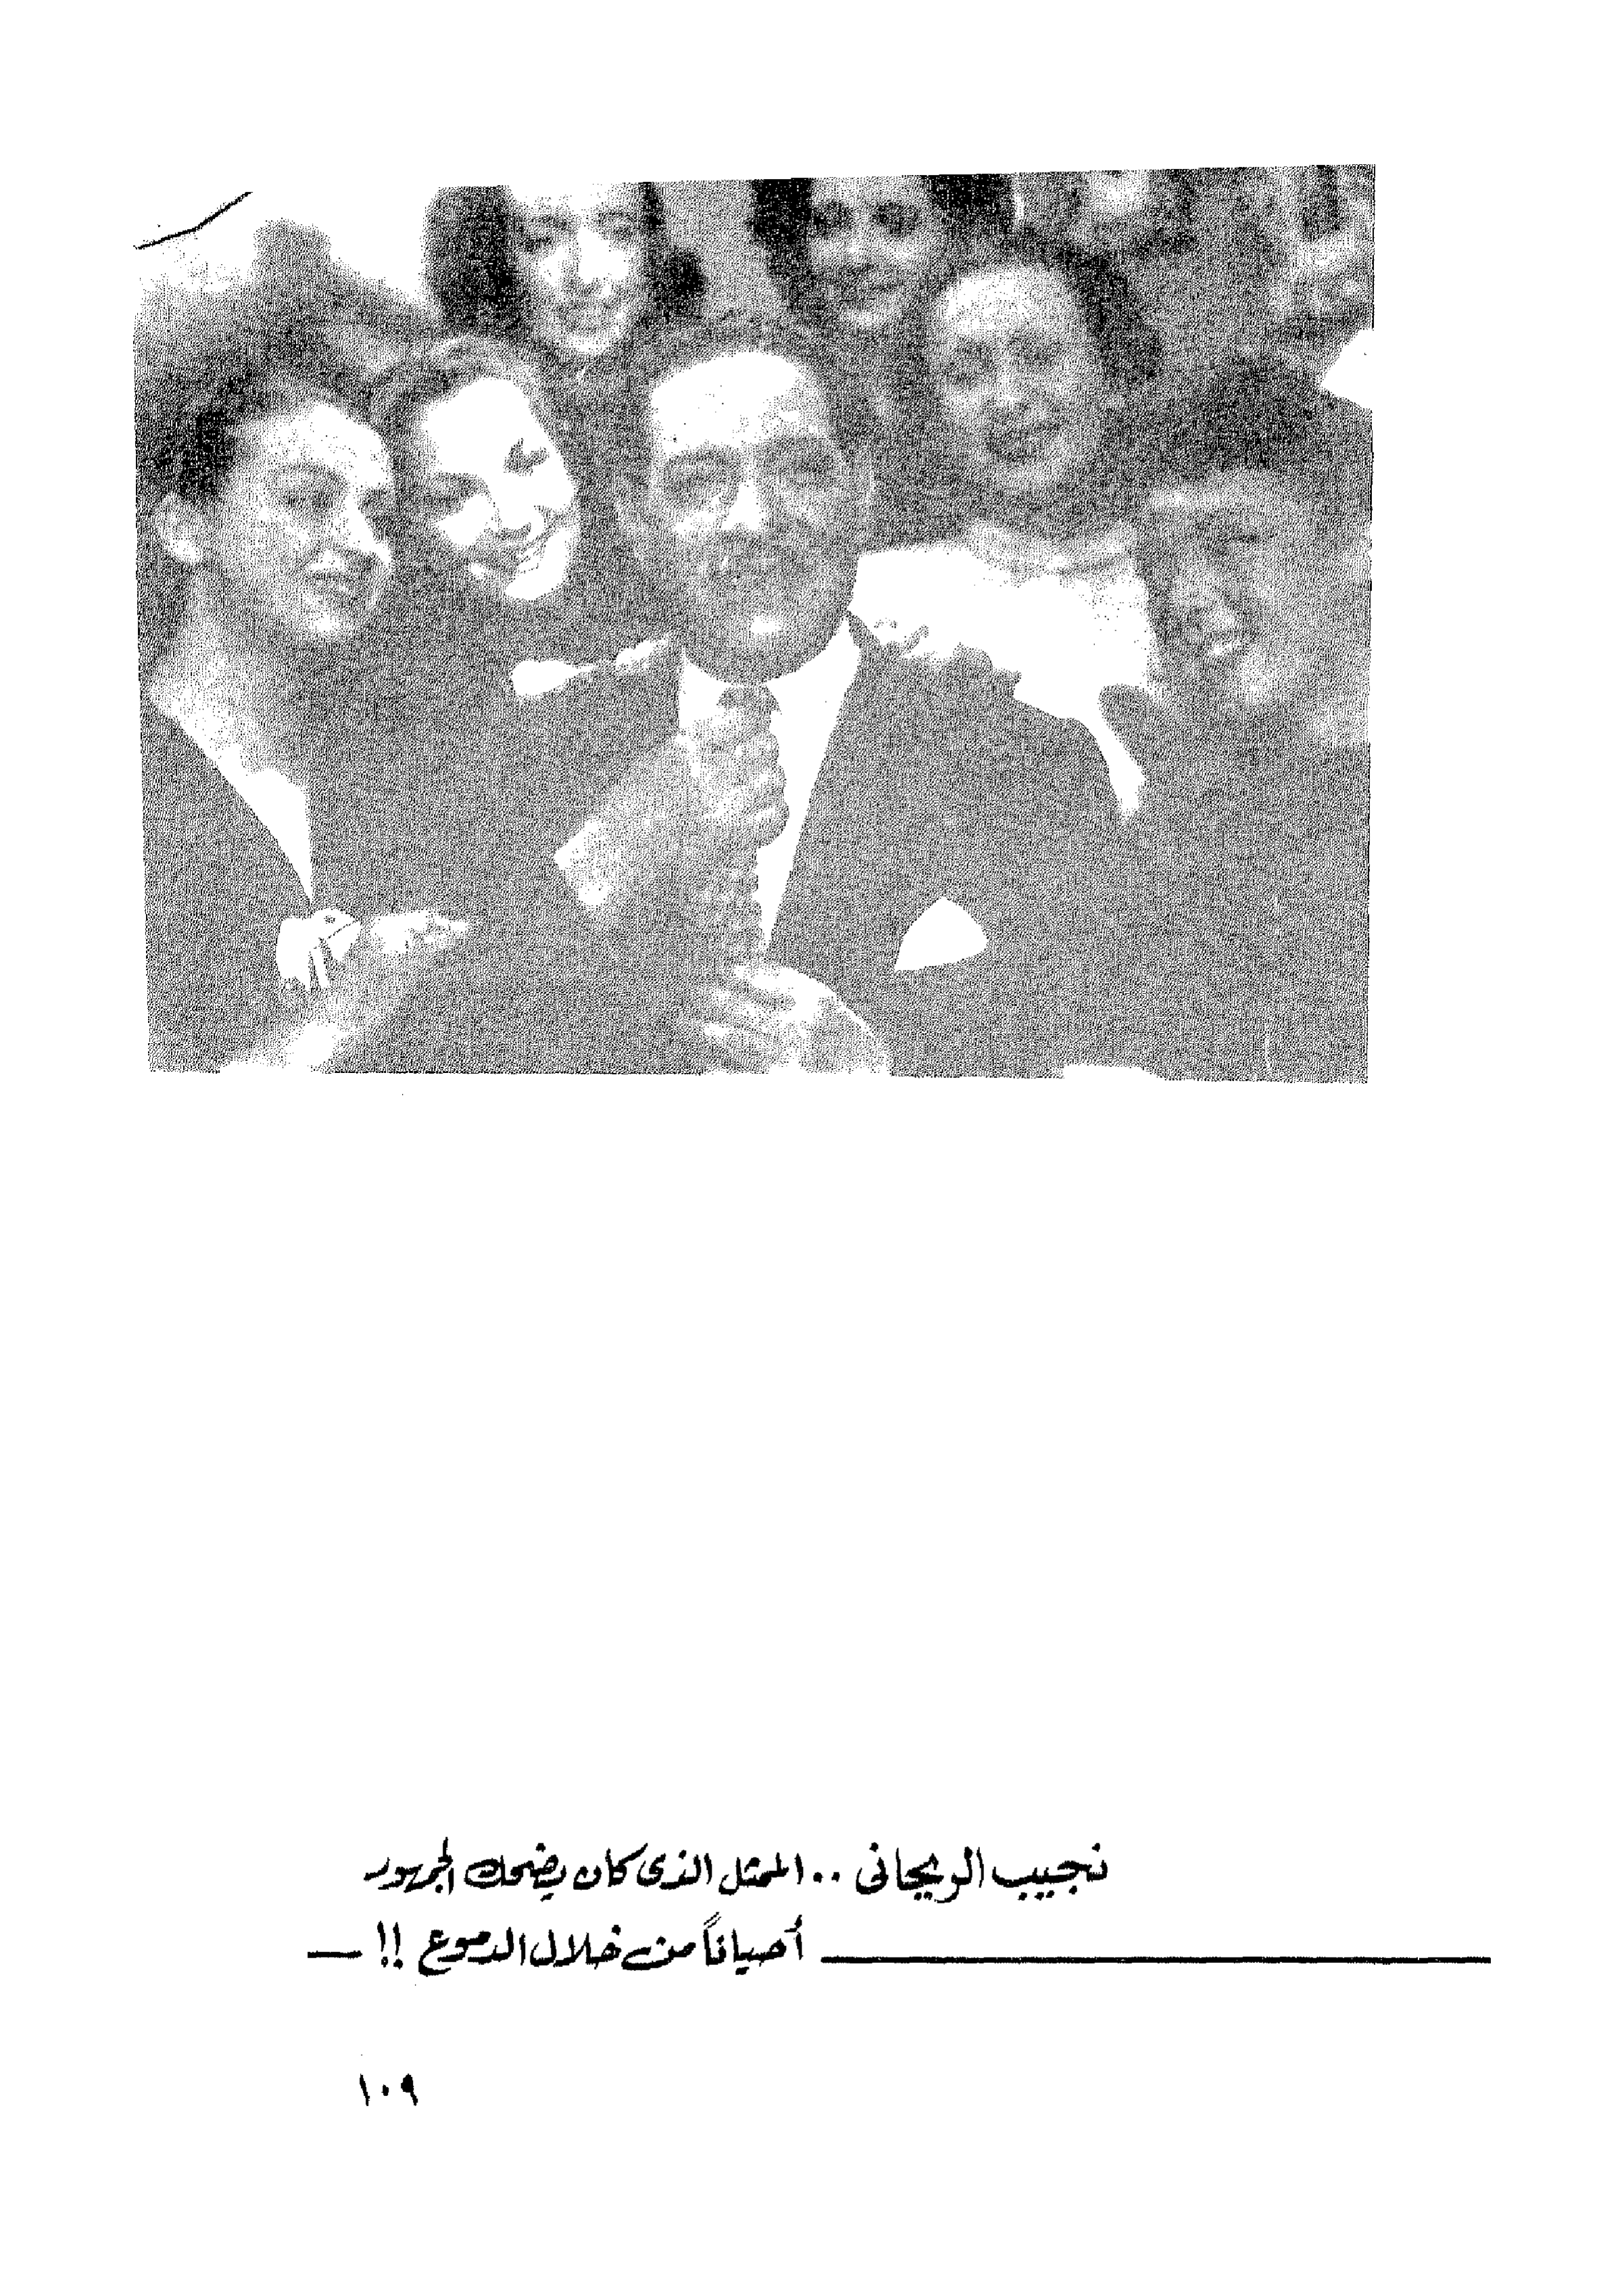 نجيب الريحانى .. الممثل الذى كان يضحك الجمهور
أحياناً من خلال الدموع !!
١٠٩